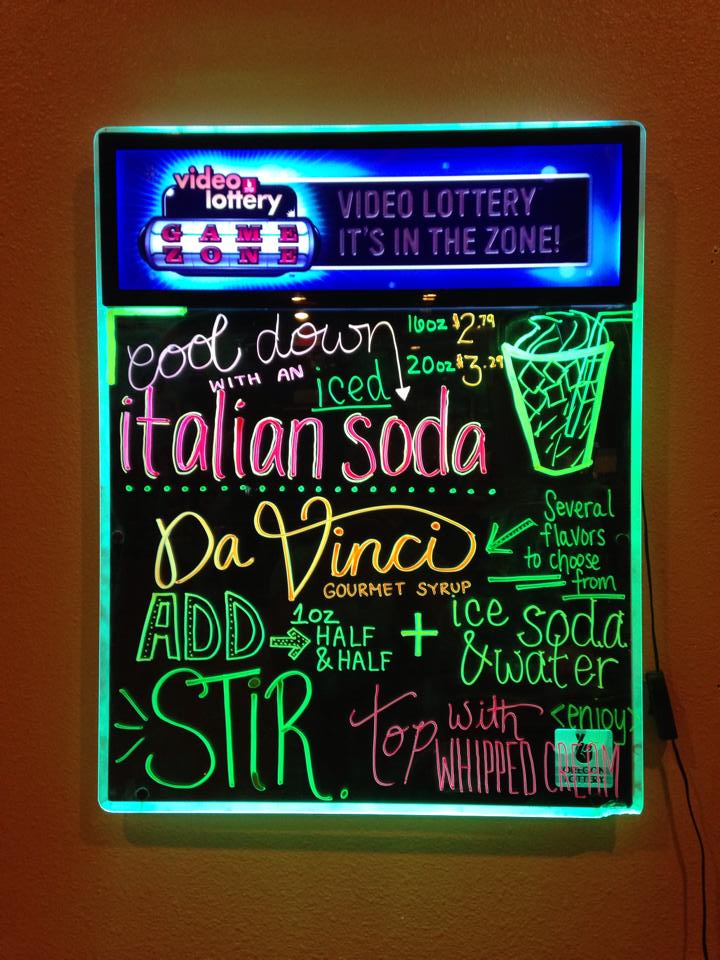 video
lottery
GAME
ZONE
VIDEO LOTTERY
IT'S IN THE ZONE!
cool down
WITH AN iced
italian soda
16oz $2.79
20oz $3.29
Da Vinci
GOURMET SYRUP
Several
flavors
to choose
from
ADD
1oz
HALF
& HALF
+
ice soda
& water
STIR.
top with
WHIPPED CREAM
<enjoy>
OREGON
LOTTERY